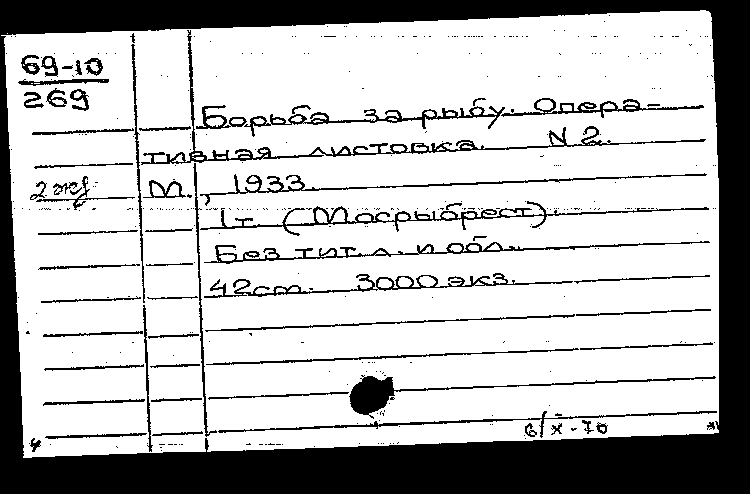 69-10
269
Борьба за рыбу. Опера-
тивная листовка. N 2.
2 экз
М., 1933.
1 т. (Мосрыбрест).
Без тит. л. и обл.
42 cm. 3000 экз.
6/X-70